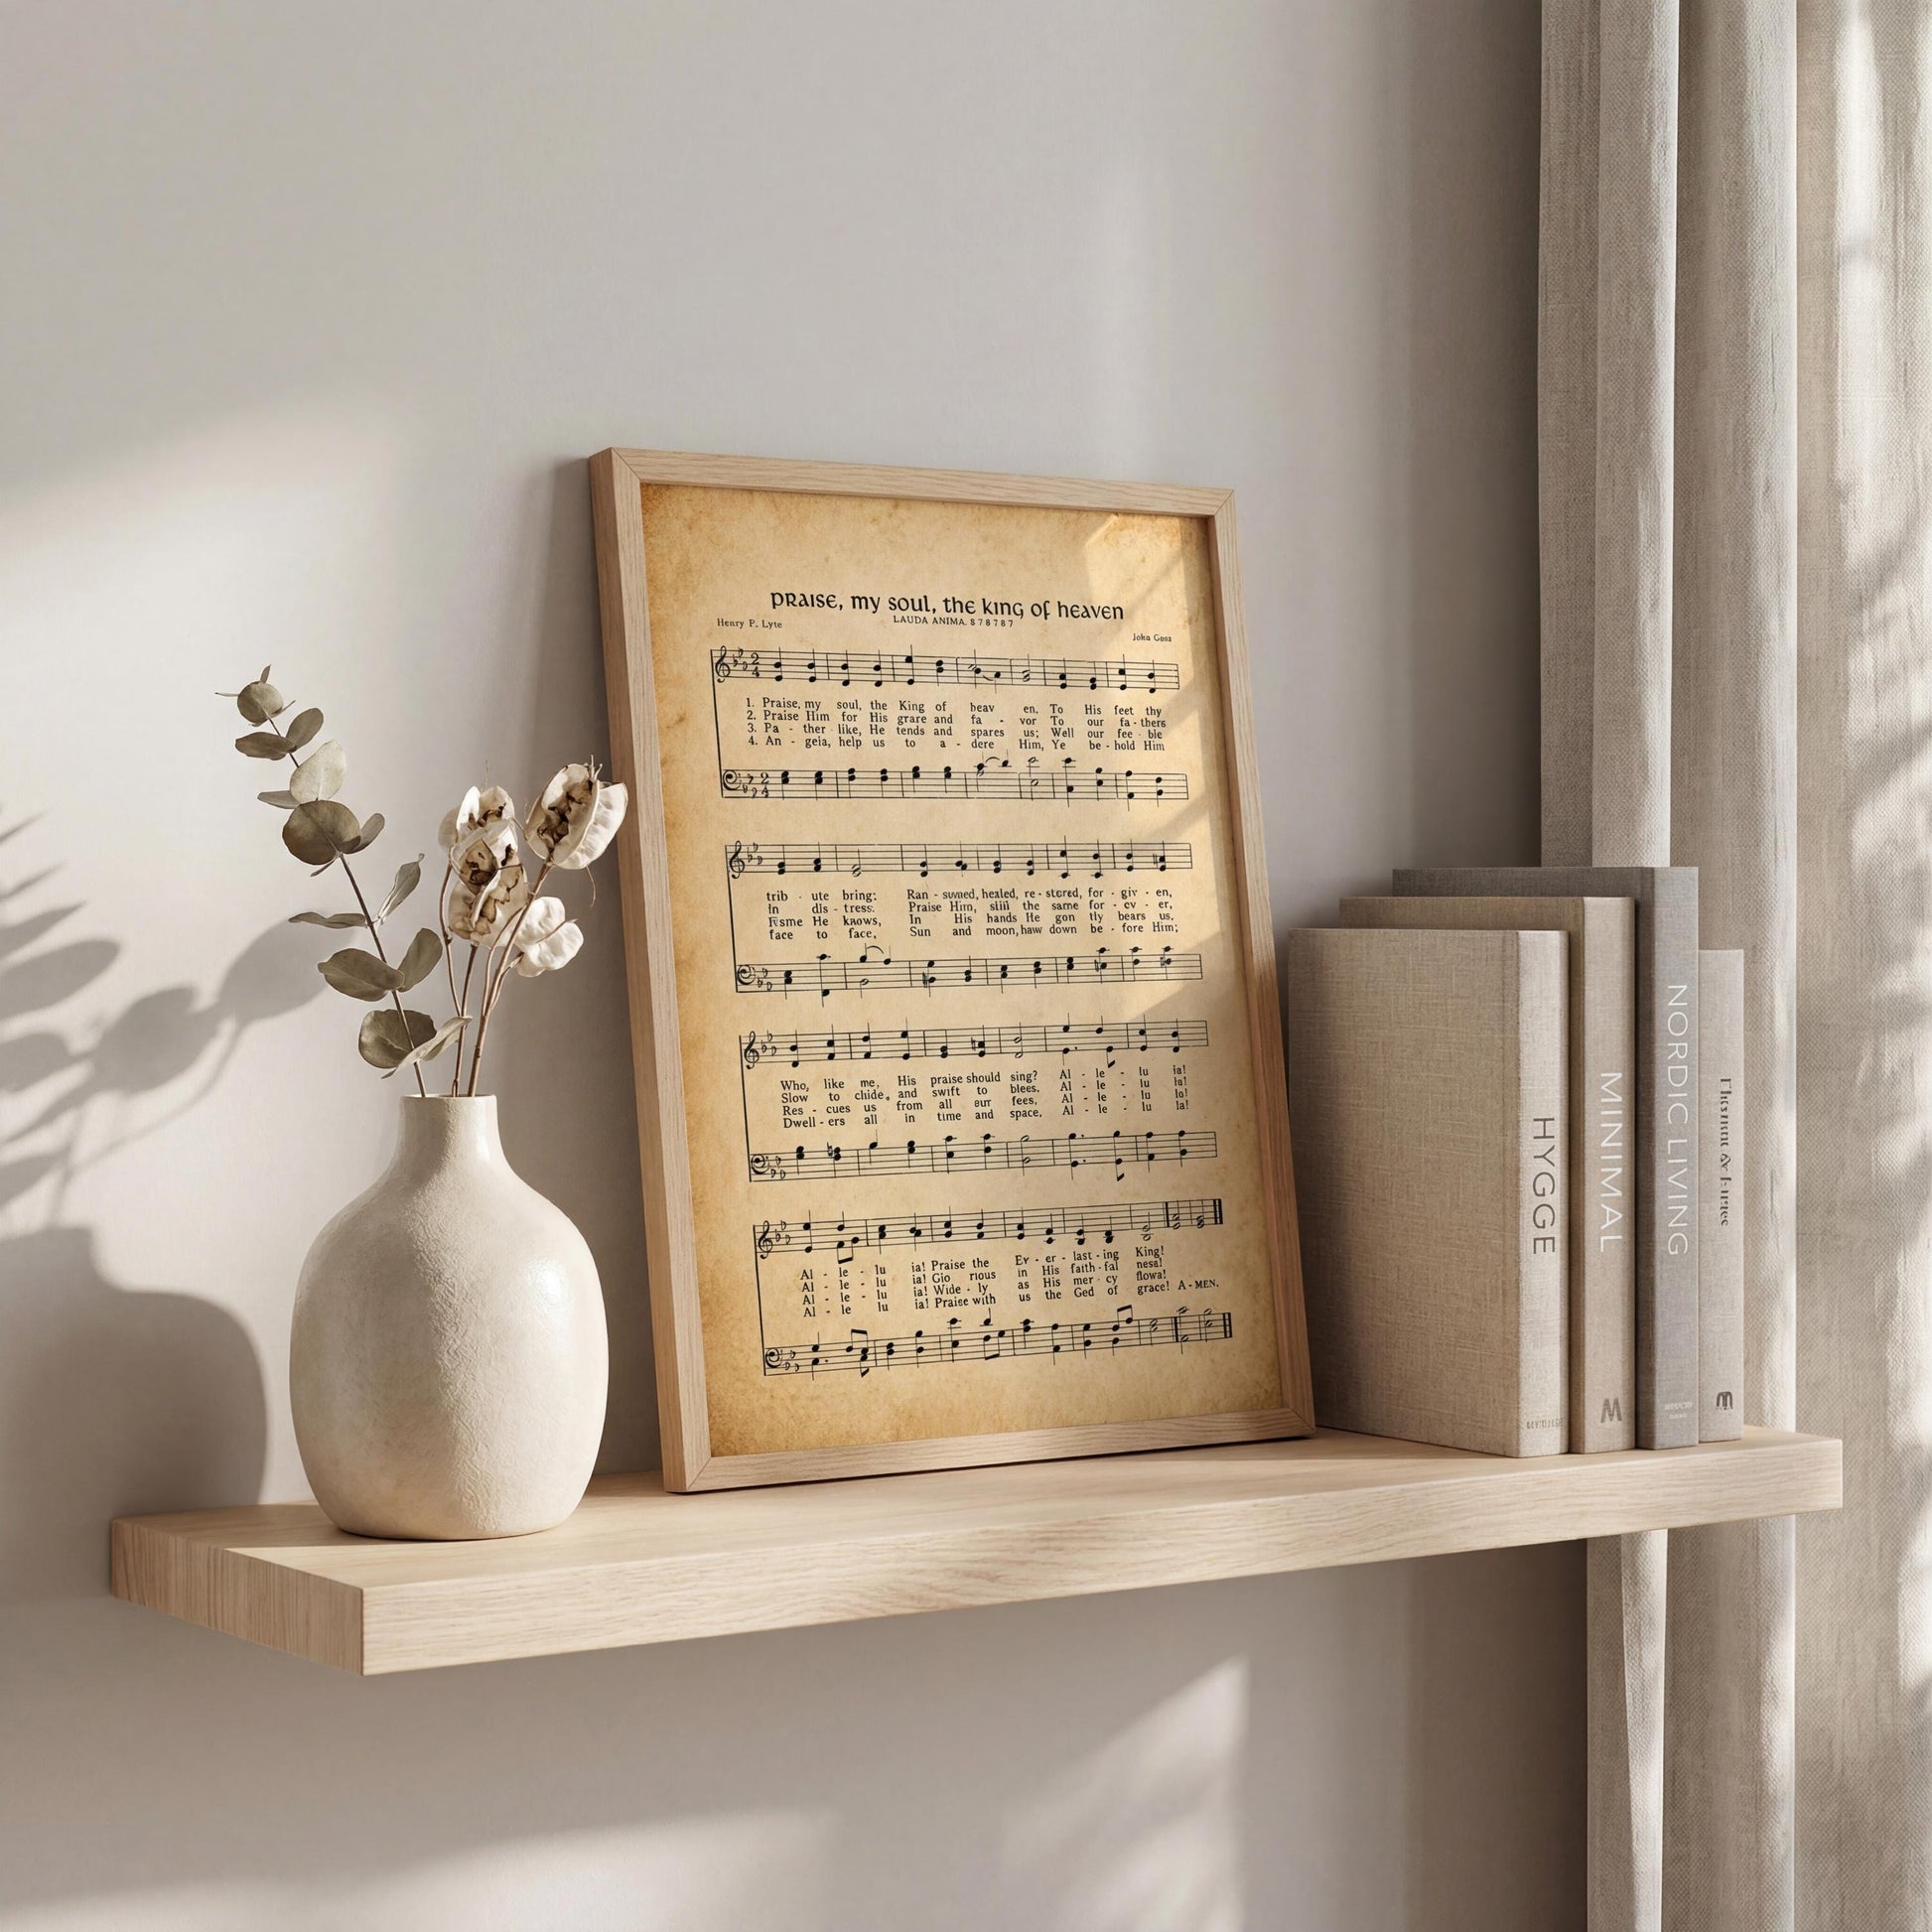 PRAISE, my soul, the king of heaven
LAUDA ANIMA. 8 7 8 7 8 7
Henry P. Lyte
John Goss
1. Praise, my soul, the King of beav en, To His feet thy
2. Praise Him for His grare and fa - vor To our fa - thers
3. Pa - ther like, He tends and spares us; Well our fee - ble
4. An - geia, help us to a - dere Him, Ye be - hold Him
trib - ute bring: Ran - suned, healed, re - stored, for - giv - en,
In dis - tress. Praise Him, sliil the same for - cv - er,
He knows, In His hands He gon tly bears us,
face to face, Sun and moon, haw down be - fore Him;
Who, like me, His praise should sing? Al - le - lu ia!
Slow to chide, and swift to blees. Al - le - lu ia!
Res - cues us from all eur fees, Al - le - lu la!
Dwell - ers all in time and space, Al - le - lu la!
Al - le - lu ia! Praise the Ev - er - last - ing King!
Al - le - lu ia! Gio rious in His faith - fal nesa!
Al - le - lu ia! Wide - ly as His mer - cy flowa!
Al - le lu ia! Praise with us the Ged of grace! A - MEN.
HYGGE
MINIMAL
NORDIC LIVING